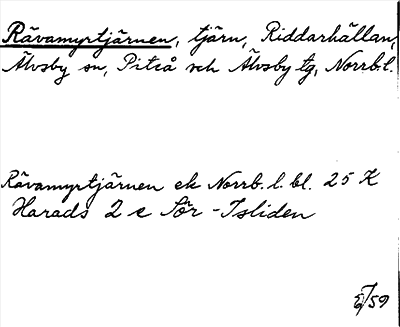 Rävamyrtjärnen, tjärn, Riddarhällan,
Älvsby sn, Piteå och Älvsby tg, Norrb.l.
Rävamyrtjärnen ek Norrb. l. bl. 25 K
Harads 2 e Sör-Isliden
/59